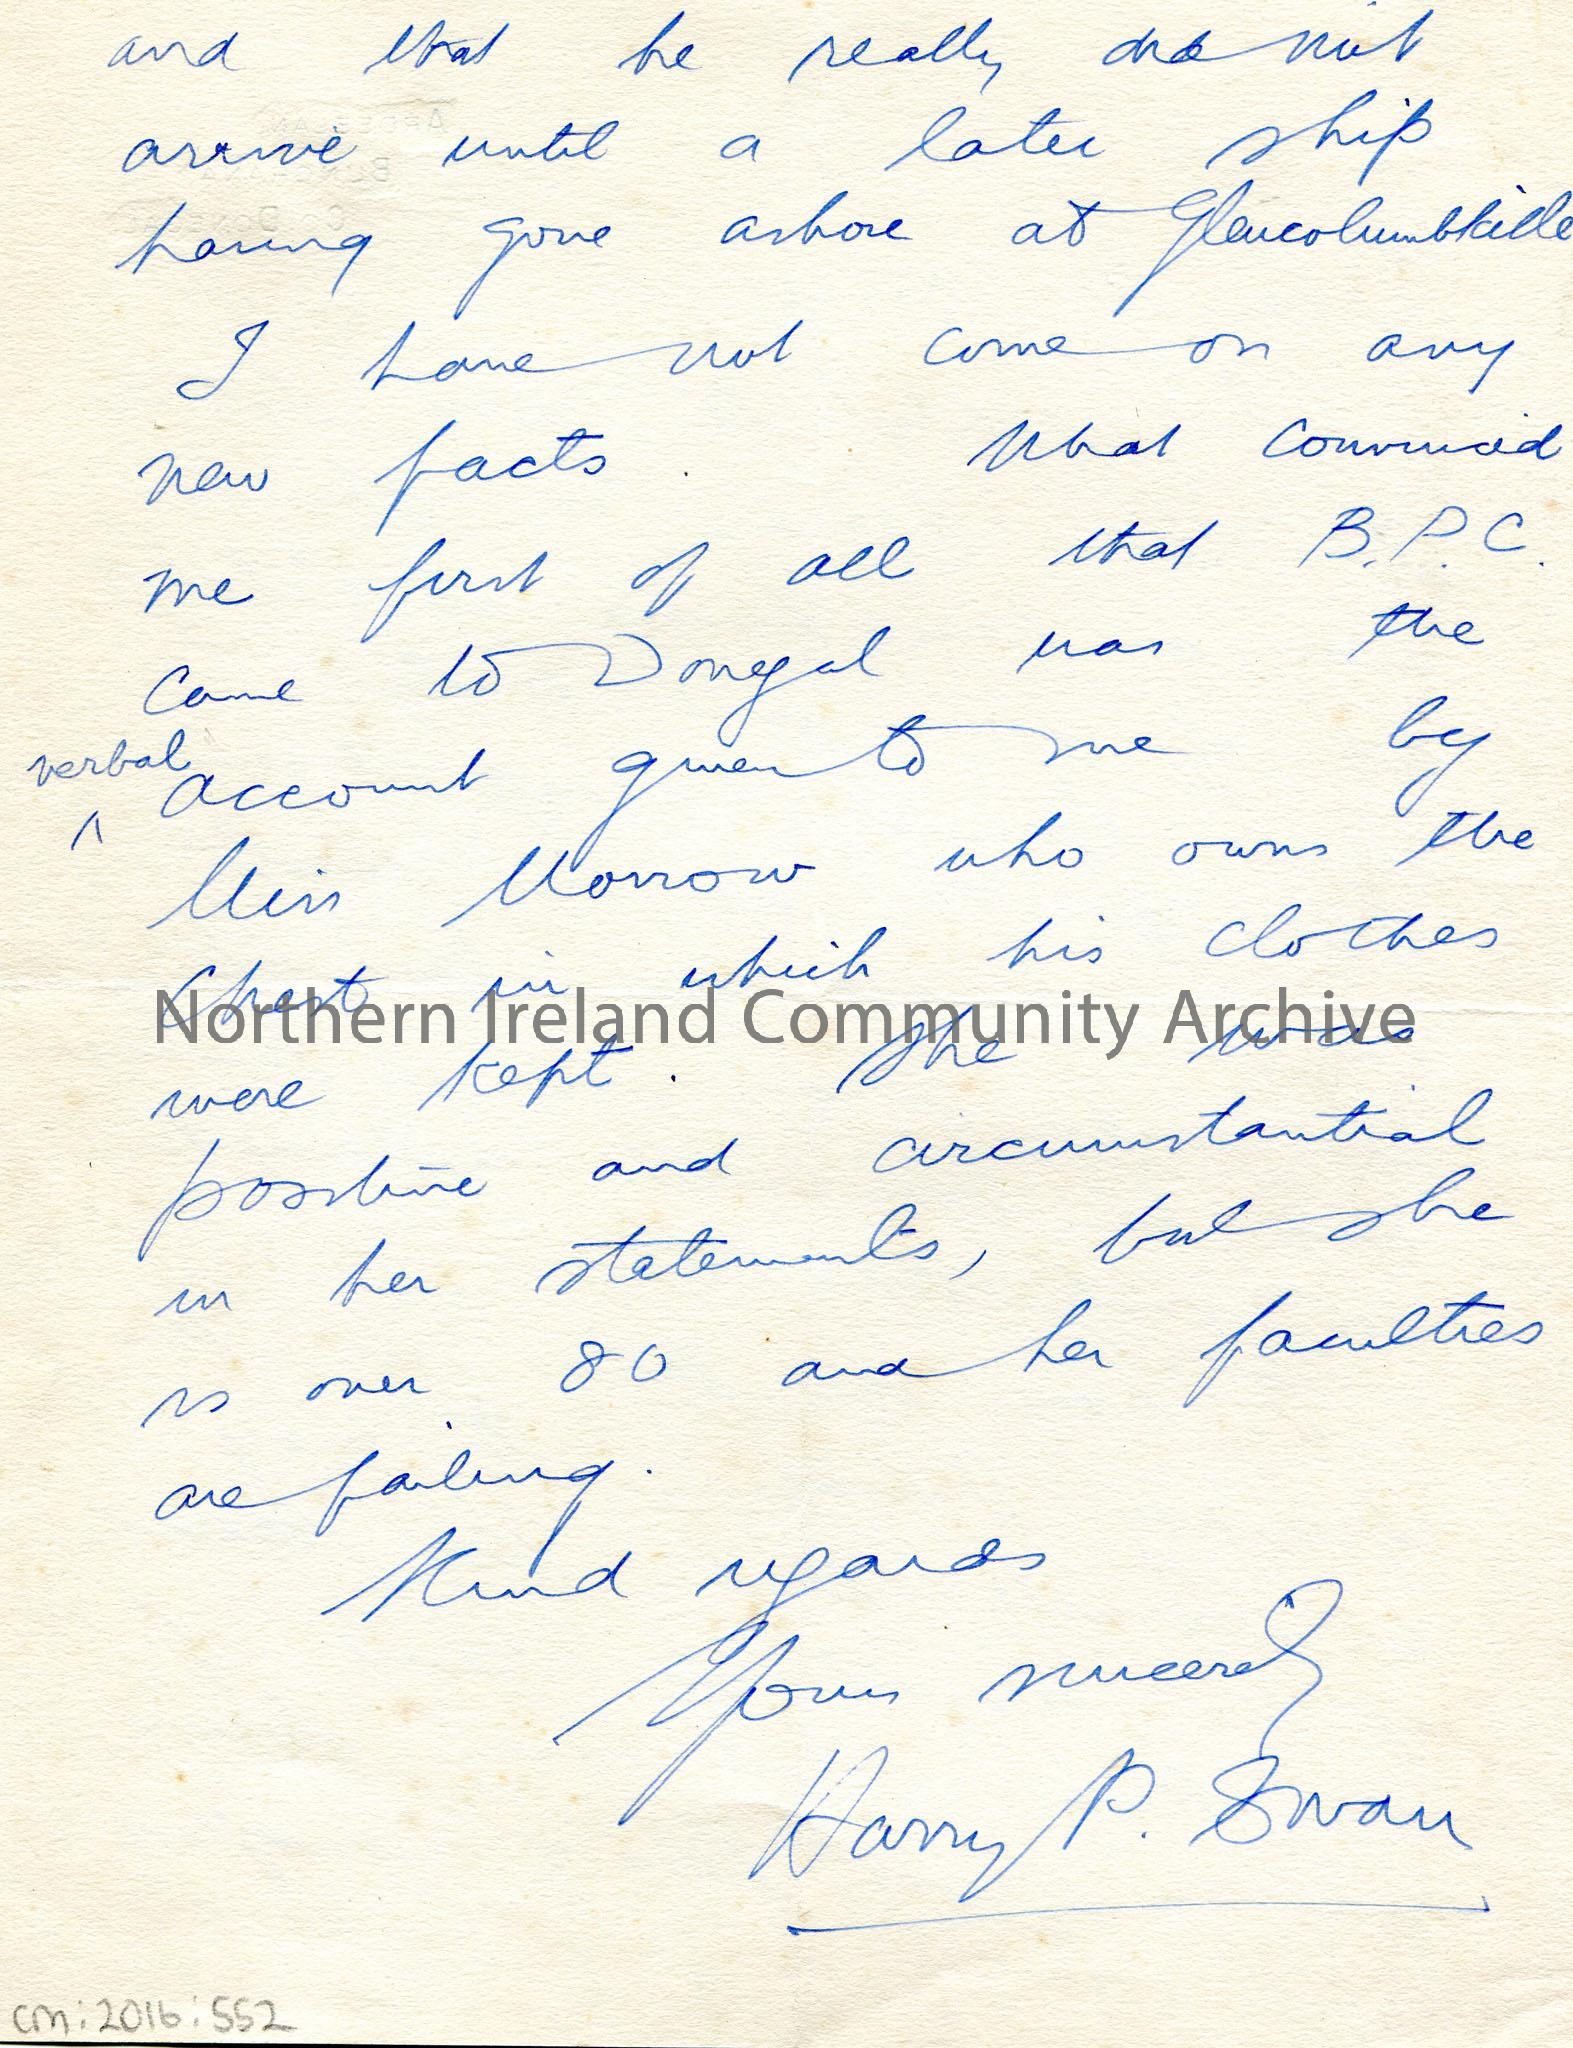 and that he really did not
arrive until a later ship
having gone ashore at Glencolumbkille
I have not come on any
new facts. What convinced
me first of all that B.P.C.
came to Donegal was the
verbal
^ account given to me by
Miss Morrow who owns the
Chest in which his clothes
Northern Ireland Community Archive
were kept. She was
positive and circumstantial
in her statements, but she
is over 80 and her faculties
are failing.
Kind regards
Yours sincerely
Harry P. Swan
cm:2016:552